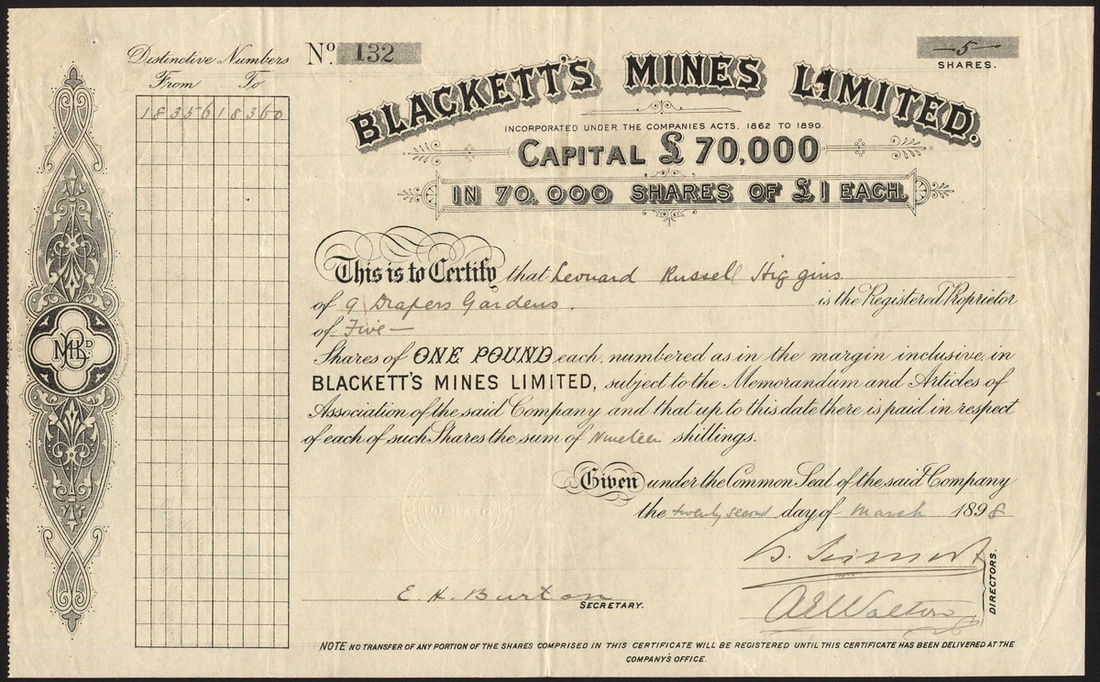 Distinctive Numbers
From To
18356 18360
No. 132
5
SHARES.
BLACKETT'S MINES LIMITED.
INCORPORATED UNDER THE COMPANIES ACTS, 1862 TO 1890.
CAPITAL £70,000
IN 70,000 SHARES OF £1 EACH.
This is to Certify that Leonard Russell Higgins
of 9 Drapers Gardens. is the Registered Proprietor
of Five—
Shares of ONE POUND each, numbered as in the margin inclusive, in
BLACKETT'S MINES LIMITED, subject to the Memorandum and Articles of
Association of the said Company and that up to this date there is paid in respect
of each of such Shares the sum of Nineteen shillings.
Given under the Common Seal of the said Company
the twenty second day of March 1898
DIRECTORS.
E. H. Burton
SECRETARY.
A E Walton
NOTE NO TRANSFER OF ANY PORTION OF THE SHARES COMPRISED IN THIS CERTIFICATE WILL BE REGISTERED UNTIL THIS CERTIFICATE HAS BEEN DELIVERED AT THE
COMPANY'S OFFICE.